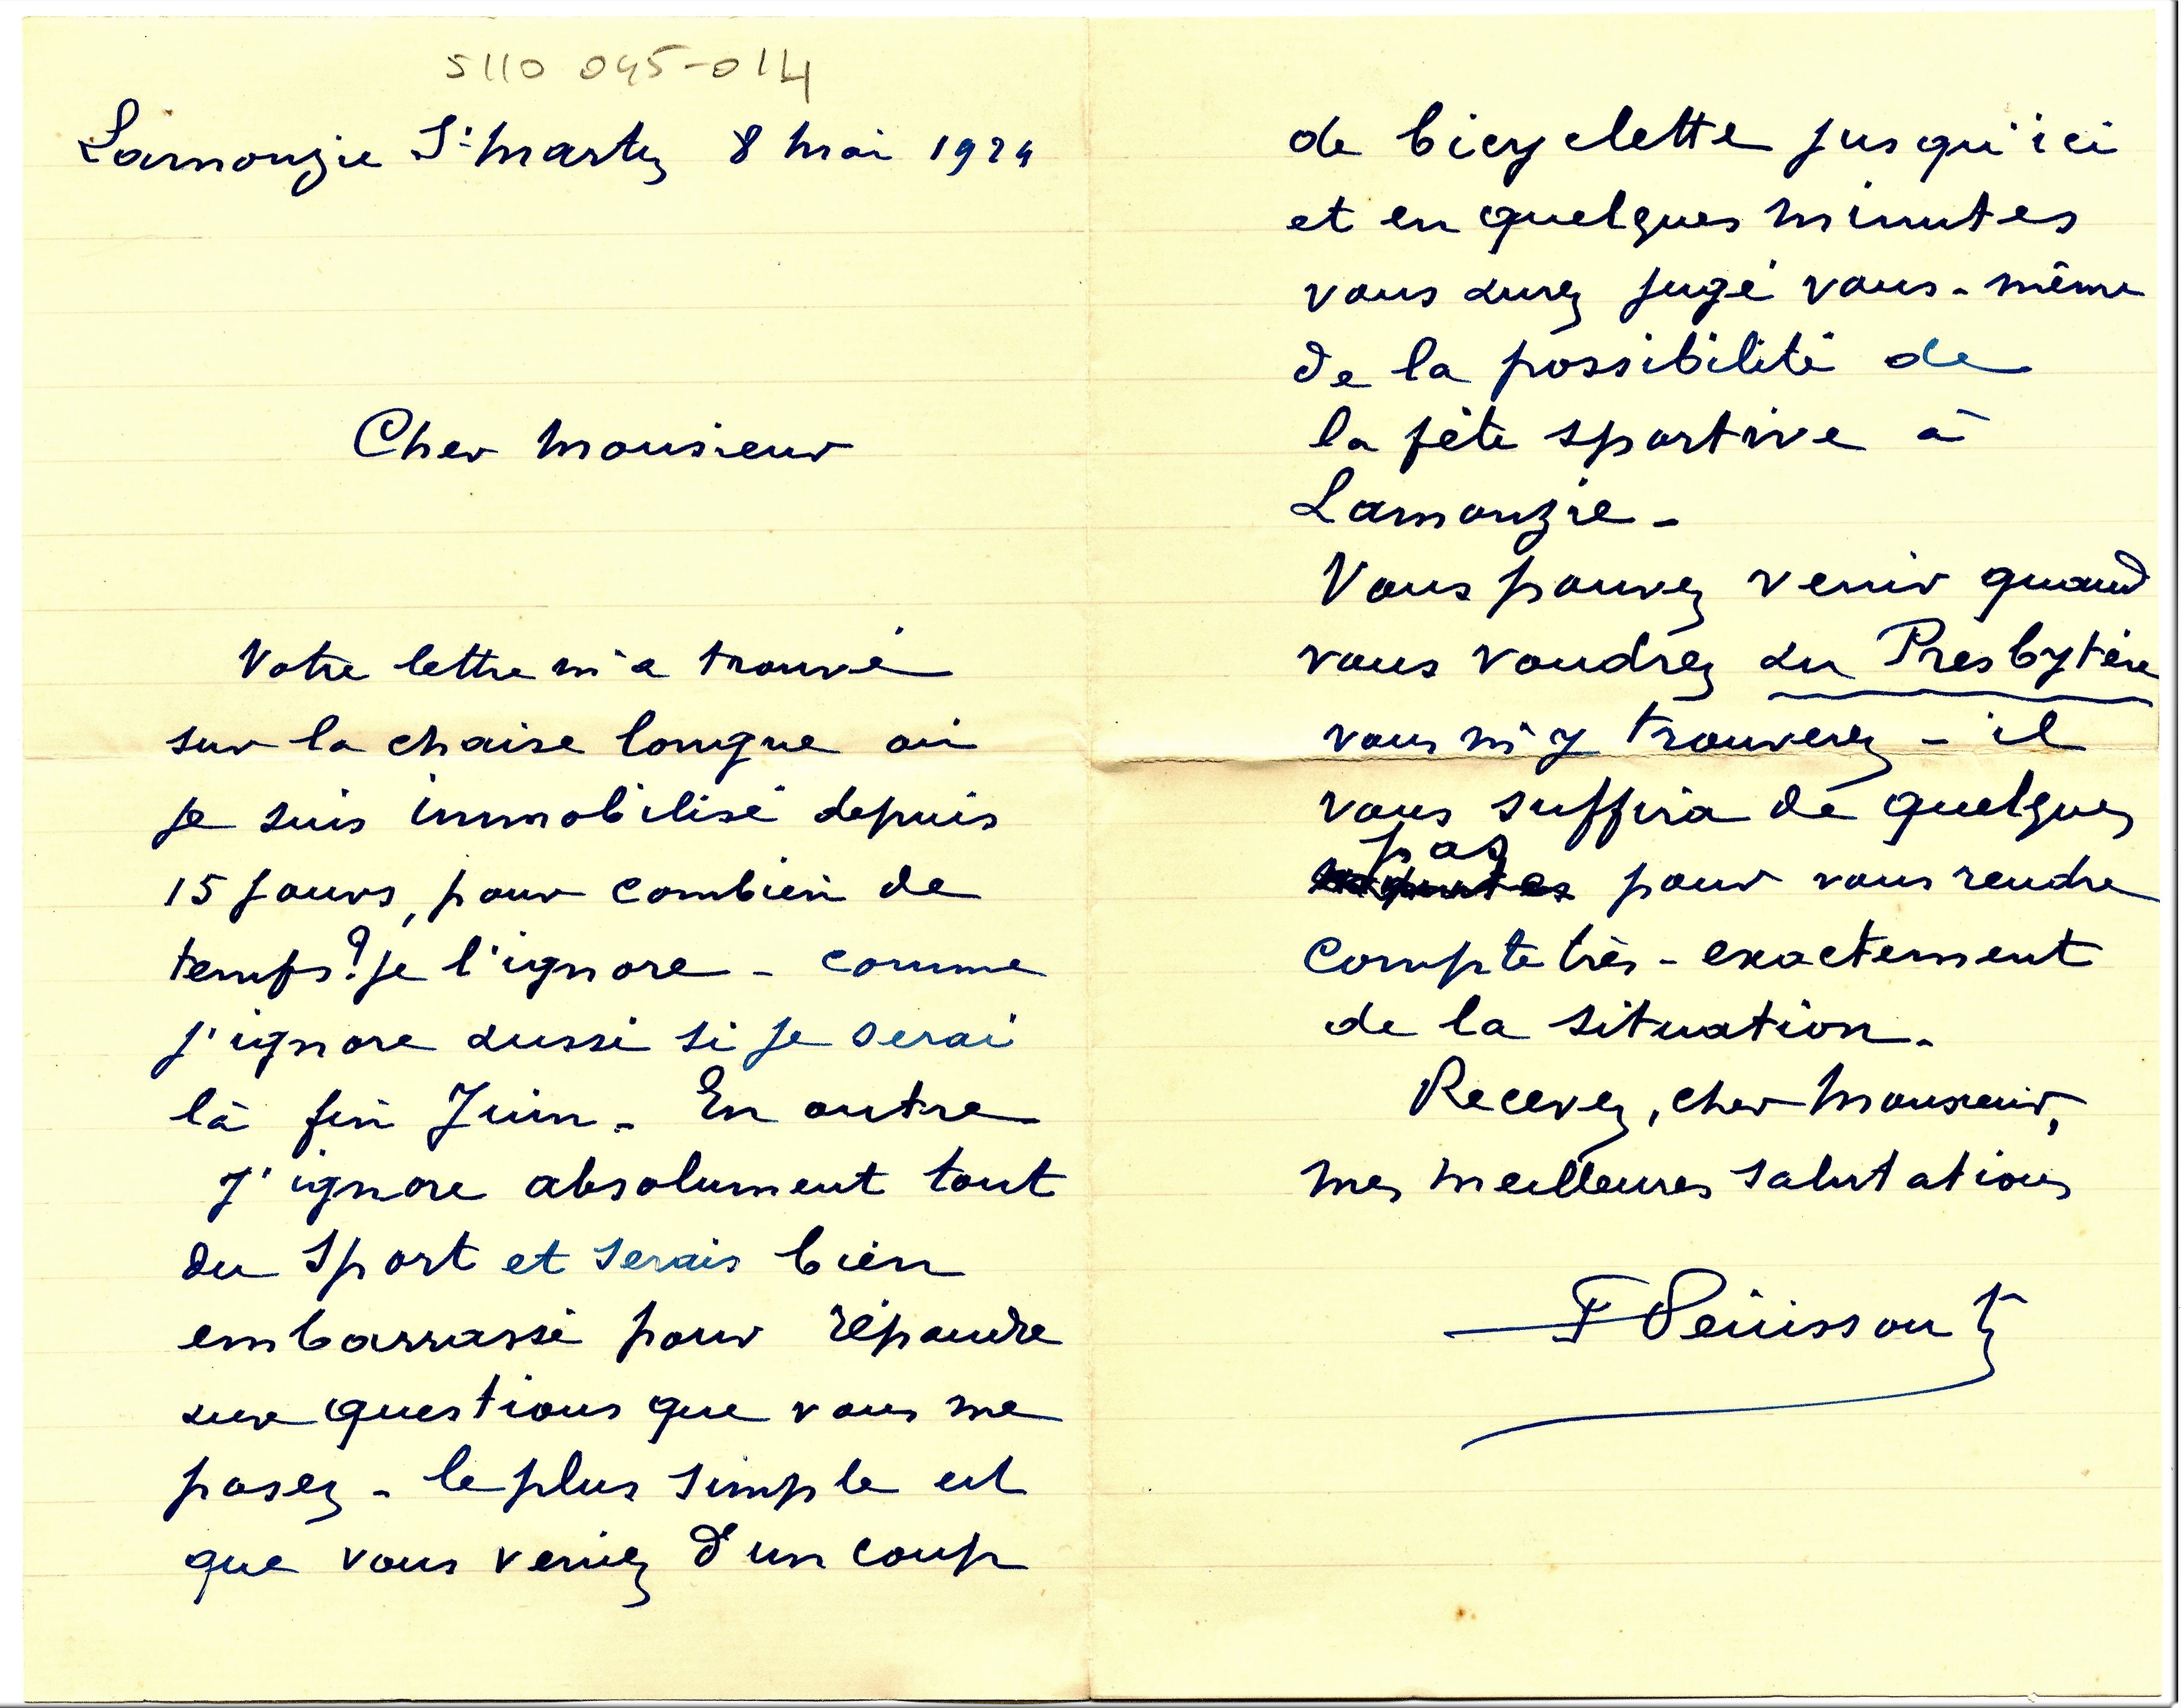 5110 045-014
Lamonzie St Martin 8 Mai 1924
Cher Monsieur
Votre lettre m'a trouvé
sur la chaise longue où
je suis immobilisé depuis
15 jours, pour combien de
temps? je l'ignore - comme
j'ignore aussi si je serai
là fin Juin. En outre
j'ignore absolument tout
du Sport et serais bien
embarrassé pour répondre
aux questions que vous me
posez - le plus simple est
que vous veniez d'un coup
de bicyclette jusqu'ici
et en quelques minutes
vous aurez jugé vous-même
de la possibilité de
la fête sportive à
Lamonzie -
Vous pouvez venir quand
vous voudrez au Presbytère
vous m'y trouverez - il
vous suffira de quelques
pas
minutes pour vous rendre
compte très-exactement
de la situation.
Recevez, cher Monsieur,
mes meilleures salutations